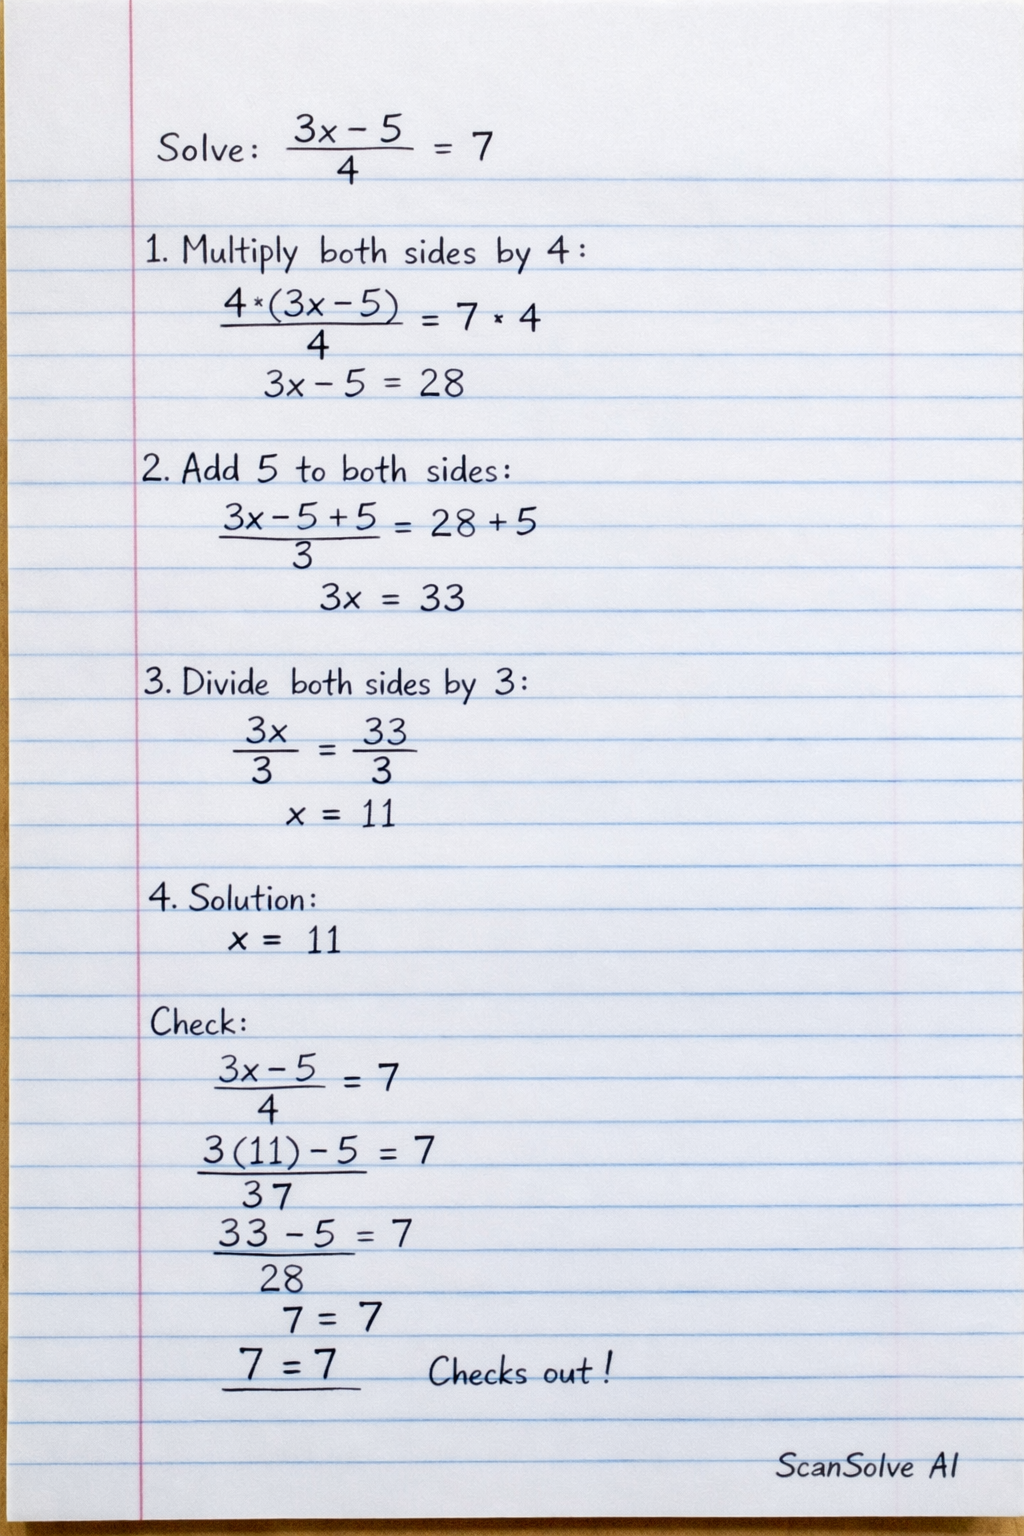 Solve: (3x - 5)/4 = 7
1. Multiply both sides by 4:
4*(3x - 5)/4 = 7 * 4
3x - 5 = 28
2. Add 5 to both sides:
(3x - 5 + 5)/3 = 28 + 5
3x = 33
3. Divide both sides by 3:
3x/3 = 33/3
x = 11
4. Solution:
x = 11
Check:
(3x - 5)/4 = 7
(3(11) - 5)/37 = 7
(33 - 5)/28 = 7
7 = 7
7 = 7 Checks out!
ScanSolve AI